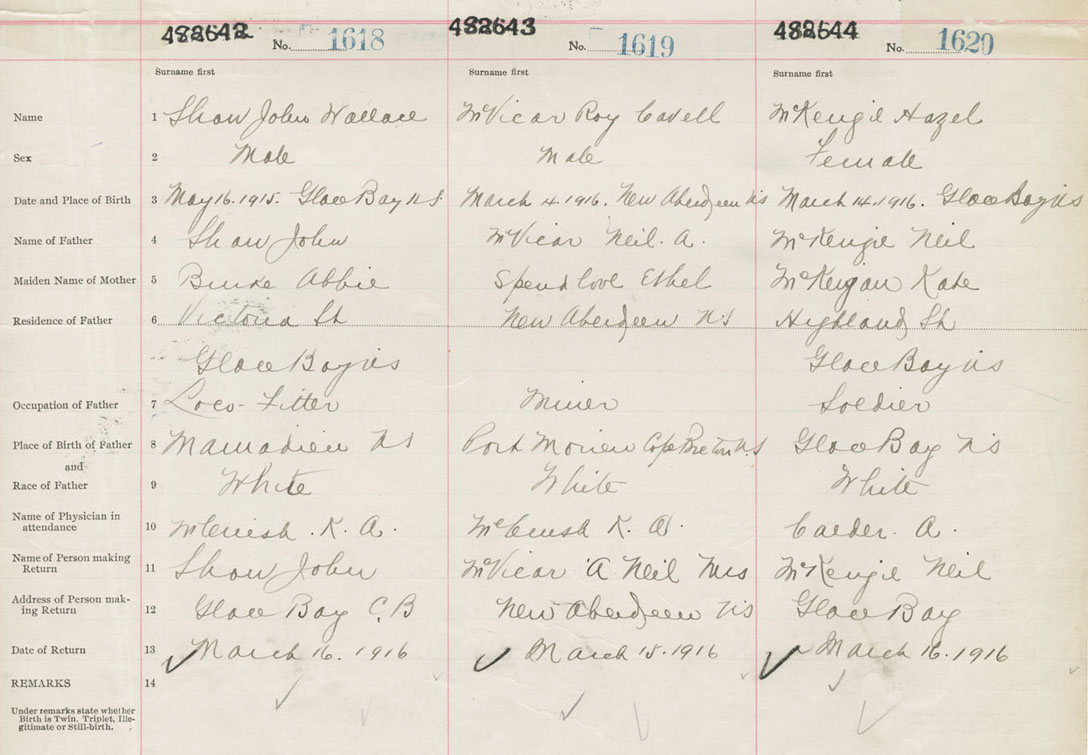 482642 482643 482644
No. 1618 No. 1619 No. 1620
Surname first Surname first Surname first
Name 1 Shaw John Wallace McVicar Roy Cavell McKenzie Hazel
Sex 2 Male Male Female
Date and Place of Birth 3 May 16. 1915. Glace Bay N.S. March 4. 1916. New Aberdeen NS March 14. 1916. Glace Bay NS
Name of Father 4 Shaw John McVicar Neil. A. McKenzie Neil
Maiden Name of Mother 5 Burke Abbie Spendlove Ethel McKeigan Kate
Residence of Father 6 Victoria St New Aberdeen NS Highland St
Glace Bay NS Glace Bay NS
Occupation of Father 7 Loco-Fitter Miner Soldier
Place of Birth of Father 8 NS Port Morien Cape Breton N.S Glace Bay NS
and
Race of Father 9 White White White
Name of Physician in
attendance 10 K. A. K. A. Calder. A.
Name of Person making
Return 11 Shaw John McVicar A Neil Mrs McKenzie Neil
Address of Person mak-
ing Return 12 Glace Bay C.B New Aberdeen NS Glace Bay
Date of Return 13 March 16. 1916 March 15. 1916 March 16. 1916
REMARKS 14
Under remarks state whether
Birth is Twin, Triplet, Ille-
gitimate or Still-birth.